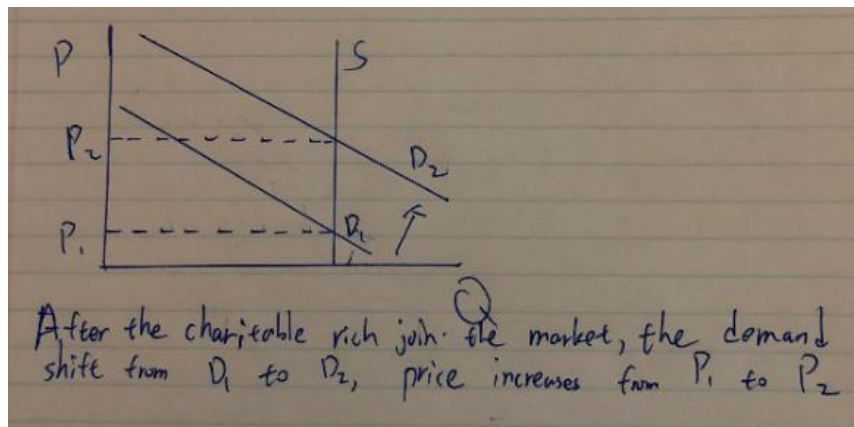 P
S
P₂
D₂
P₁
D₁
Q
After the charitable rich join the market, the demand
shift from D₁ to D₂, price increases from P₁ to P₂